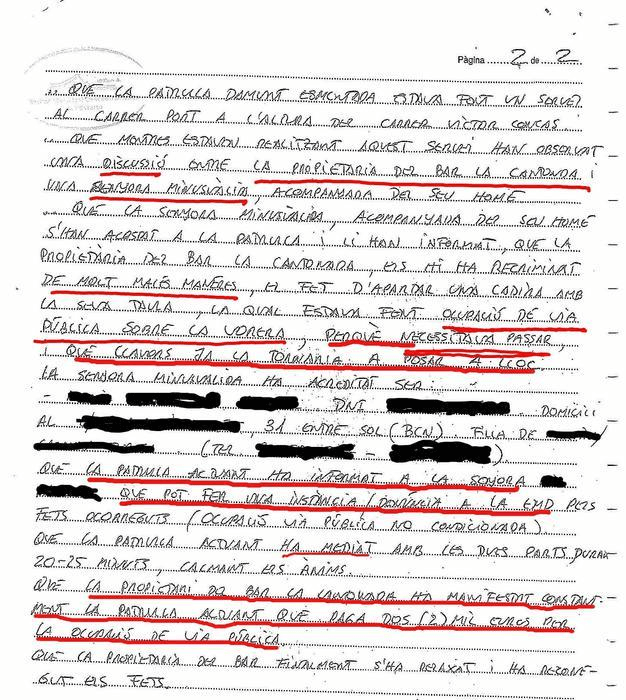 Pàgina 2 de 2
.. QUE LA PATRULLA DAMUNT ESMENTADA ESTAVA FENT UN SERVEI
AL CARRER PORT A L'ALÇADA DEL CARRER VICTOR CONCAS.
.. QUE MENTRES ESTAVEN REALITZANT AQUEST SERVEI HAN OBSERVAT
UNA DISCUSSIÓ ENTRE LA PROPIETARIA DEL BAR LA CANTONDA I
UNA SENYORA MINUSVÀLIDA, ACOMPANYADA DEL SEU HOME
.. QUE LA SENYORA MINUSVÀLIDA, ACOMPANYADA DEL SEU HOME
S'HAN ACOSTAT A LA PATRULLA I LI HAN INFORMAT, QUE LA
PROPIETÀRIA DEL BAR LA CANTONADA, ELS HI HA RECRIMINAT
DE MOLT MALES MANERES, EL FET D'APARTAR UNA CADIRA AMB
LA SEVA TAULA, LA QUAL ESTAVA FENT OCUPACIÓ DE VIA
PÚBLICA SOBRE LA VORERA, PERQUÈ NECESSITAVA PASSAR,
I QUE LLAVORS JA LA TORNARIA A POSAR A LLOC.
LA SENYORA MINUSVALIDA HA ACREDITAT SER: -
- DNI . DOMICILI
AL , 31 ENTRE SOL (BCN) FILLA DE /
(TEL. - )
QUE LA PATRULLA ACTUANT HA INFORMAT A LA SENYORA
QUE POT FER UNA INSTÀNCIA/DENÚNCIA A LA PELS
FETS OCORREGUTS (OCUPACIÓ VIA PÚBLICA NO CONDICIONADA)
QUE LA PATRULLA ACTUANT HA MEDIAT AMB LES DUES PARTS, DURANT
20-25 MINUTS, CALMANT ELS ÀNIMS.
QUE LA PROPIETARI DEL BAR LA CANTONADA HA MANIFESTAT CONSTANT-
MENT LA PATRULLA ACTUANT QUE PAGA DOS (2) MIL EUROS PER
LA OCUPACIÓ DE VIA PÚBLICA.
QUE LA PROPIETARIA DEL BAR FINALMENT S'HA RELAXAT I HA RECONE-
GUT ELS FETS.